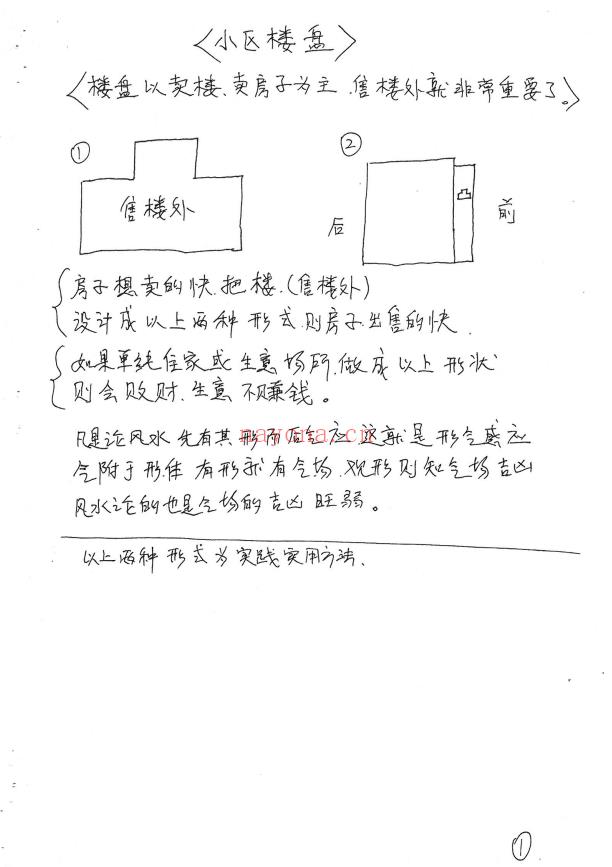 <小区楼盘>
<楼盘以卖楼、卖房子为主.售楼外就非常重要了。>
① ②
售楼外 后 前
房子想卖的快.把楼.(售楼外)
设计成以上两种形式.则房子出售的快.
如果单纯住家或生意场所.做成以上形状
则会败财.生意不赚钱。
凡是论风水先有其形而后气应 这就是形气感应
气附于形体 有形就有气场.观形则知气场吉凶
风水论的也是气场的吉凶旺弱。
以上两种形式为实践实用方法.
①